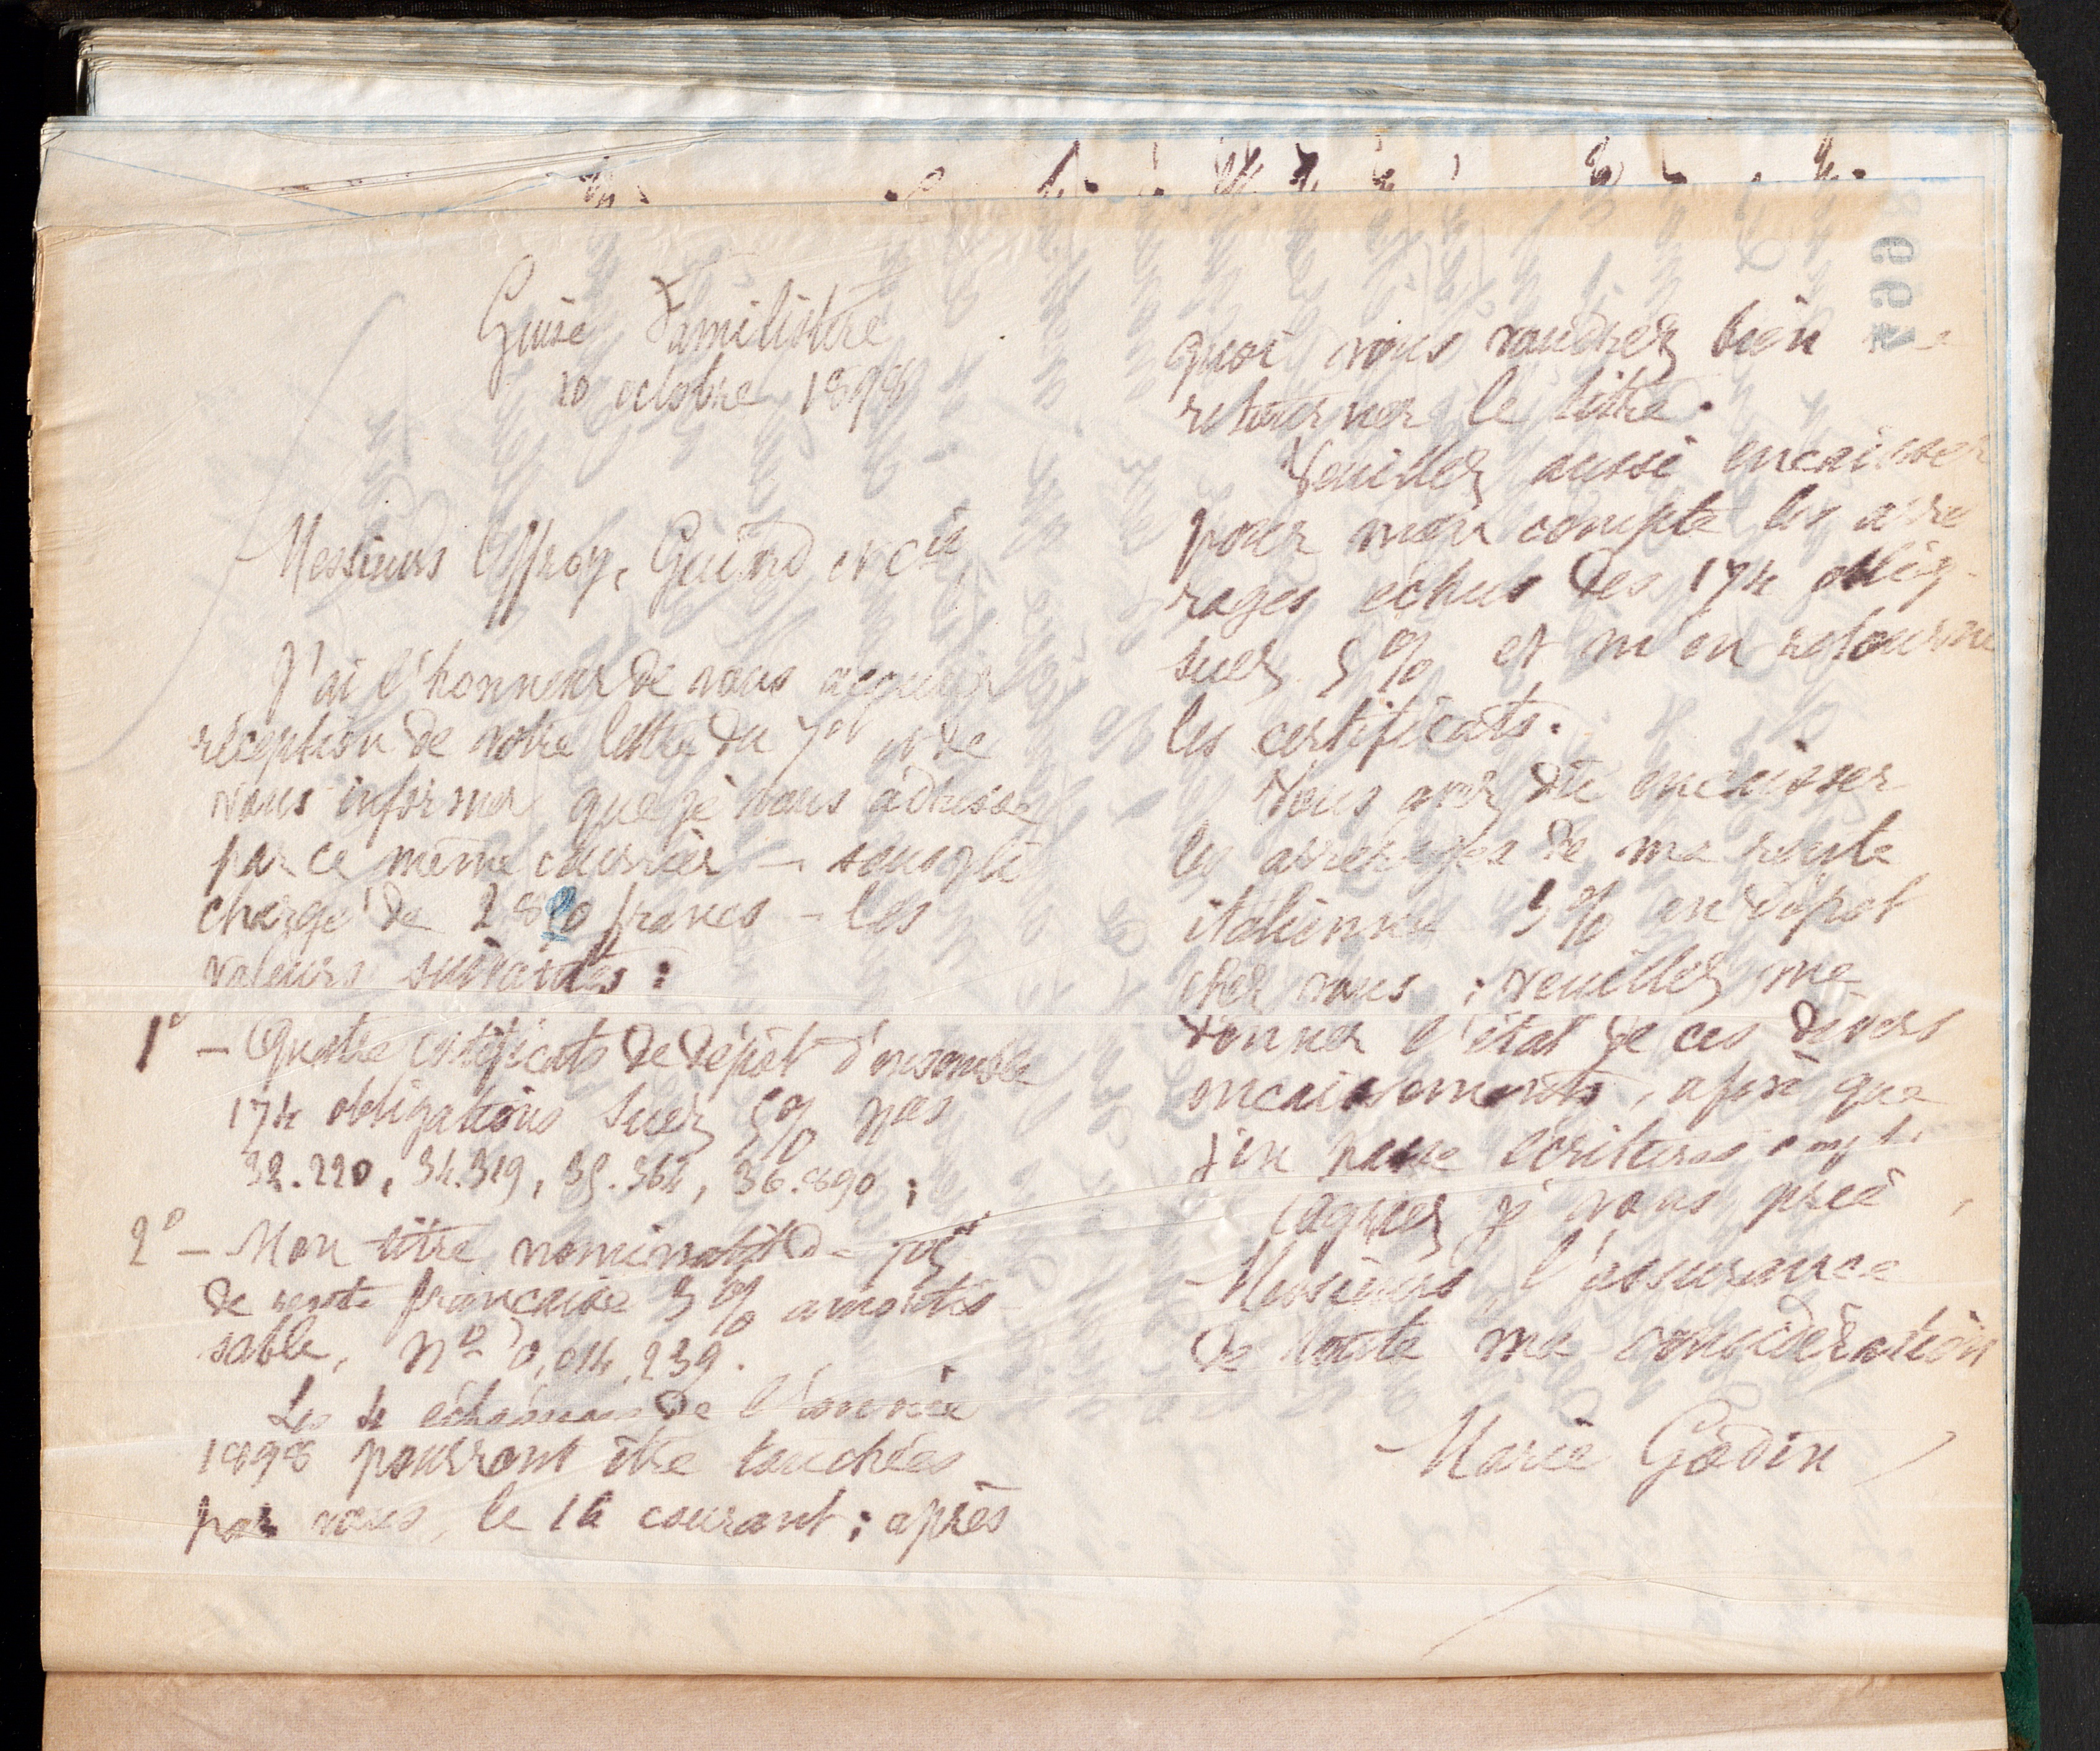 Guise Familistère
10 octobre 1898
Messieurs Offroy, Guiard et Cie,
J'ai l'honneur de vous accuser
réception de votre lettre du 7 ct et de
vous informer que je vous adresse
par ce même courrier — sous pli
chargé de 2800 francs — les
valeurs suivantes :
1° — Quatre certificats de dépôt d'ensemble
174 obligations Suez 5% nos
32.220, 34.319, 35.364, 36.890 ;
2° — Mon titre nominatif de
de rente française 3% amortis
sable, No 0,014,239.
Les 4 échéances de l'année
1898 pourront être touchées
par vous, le 16 courant ; après
quoi vous voudrez bien me
retourner le titre.
Veuillez aussi encaisser
pour mon compte les arré
rages échus des 174 oblig.
Suez 5% et m'en retourner
les certificats.
Vous avez dû encaisser
les arrérages de ma rente
italienne 5% en dépôt
chez vous ; veuillez me
donner l'état de ces divers
encaissements, afin que
j'en passe écritures
Agréez je vous prie,
Messieurs, l'assurance
de toute ma considération
Marie Godin